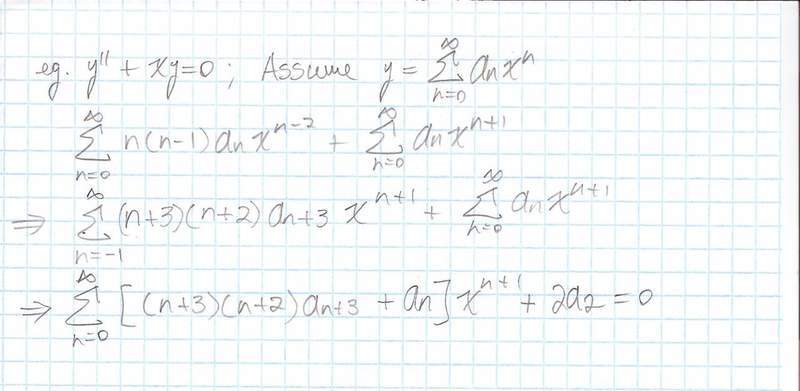 eg. y'' + xy=0 ; Assume y = ∑_{n=0}^{∞} a_n x^n
∑_{n=0}^{∞} n(n-1) a_n x^{n-2} + ∑_{n=0}^{∞} a_n x^{n+1}
⇒ ∑_{n=-1}^{∞} (n+3)(n+2) a_{n+3} x^{n+1} + ∑_{n=0}^{∞} a_n x^{n+1}
⇒ ∑_{n=0}^{∞} [(n+3)(n+2) a_{n+3} + a_n] x^{n+1} + 2a_2 = 0